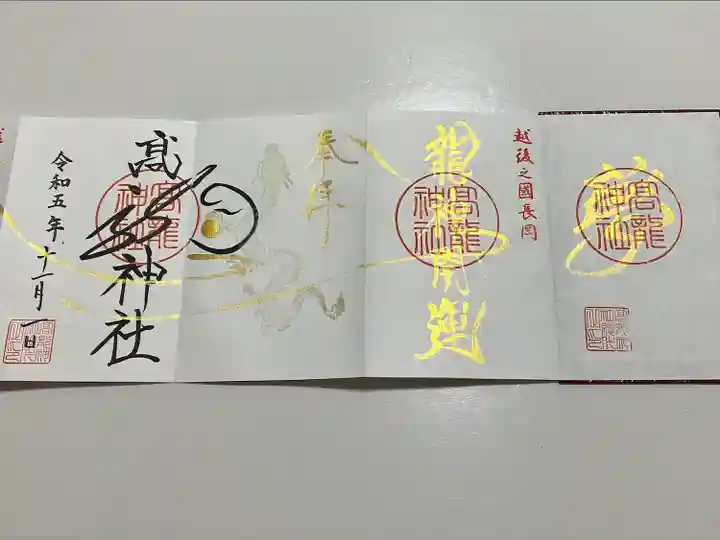 夢
高龍
神社
越後之國長岡
龍神開運
高龍
神社
奉拝
高龍神社
高龍
神社
令和五年十一月一日